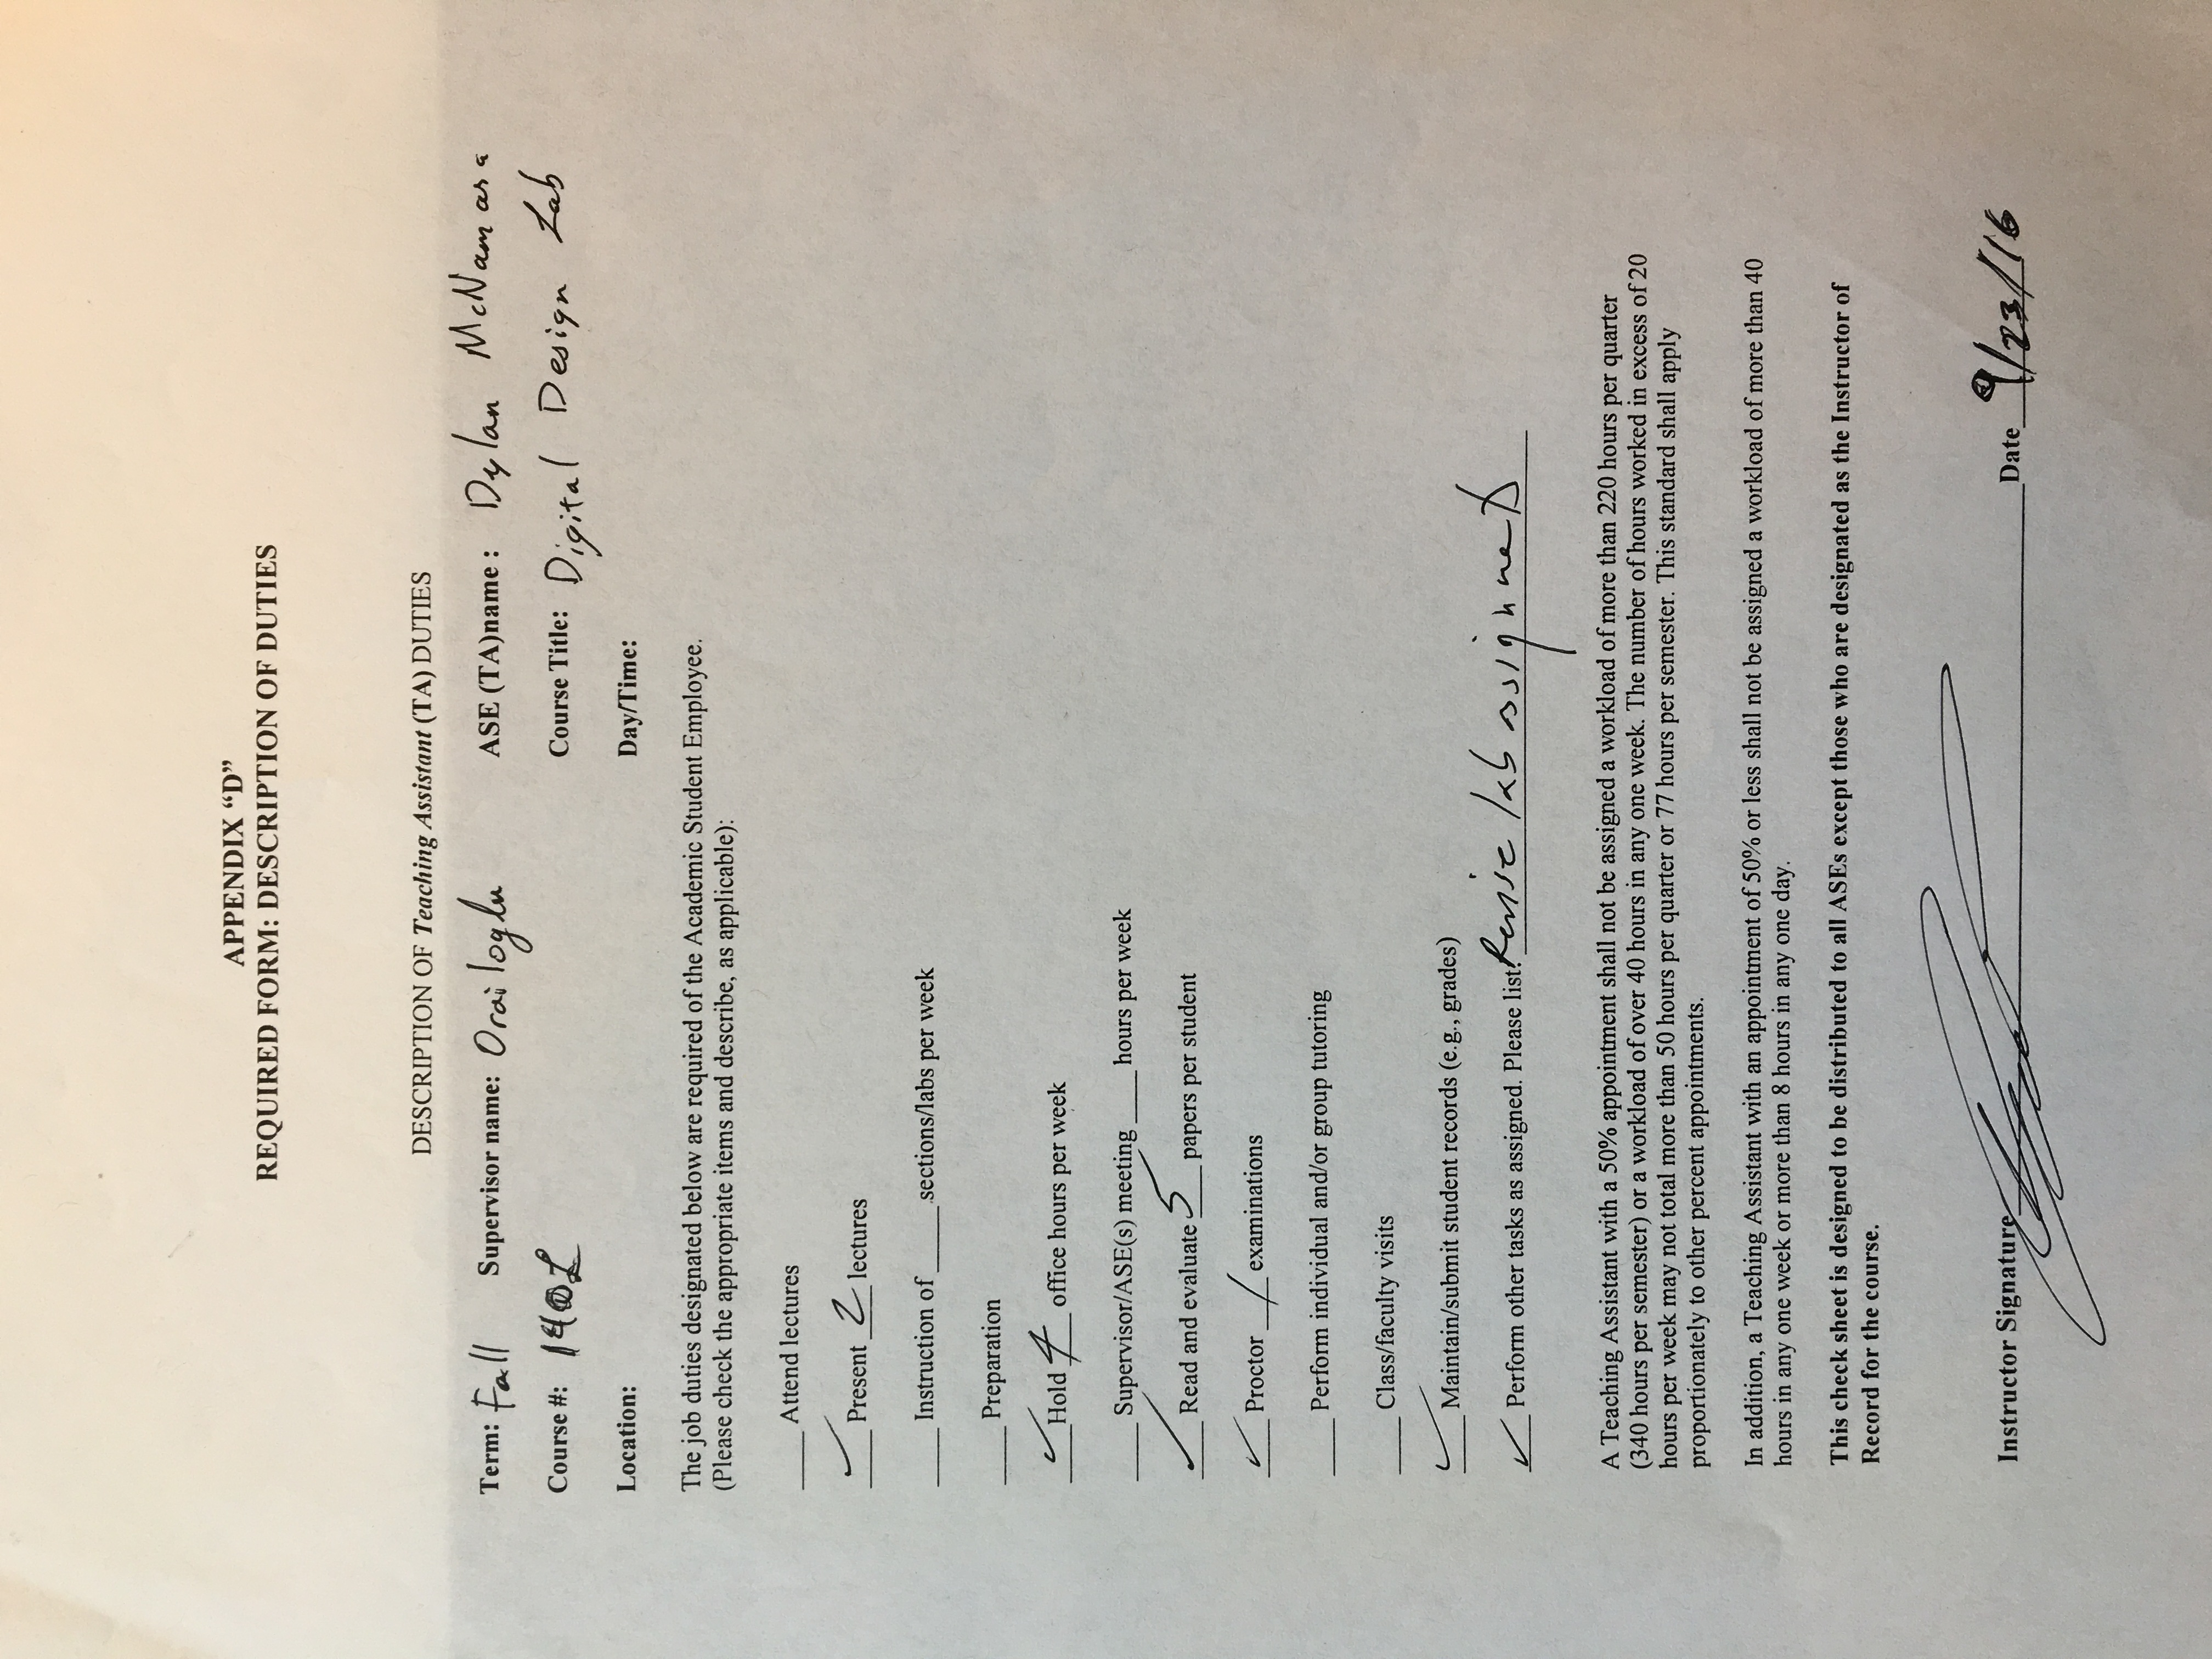 APPENDIX “D”
REQUIRED FORM: DESCRIPTION OF DUTIES
DESCRIPTION OF Teaching Assistant (TA) DUTIES
Term: Fall Supervisor name: Orailoglu ASE (TA)name : Dylan McNamara
Course #: 140L Course Title: Digital Design Lab
Location: Day/Time:
The job duties designated below are required of the Academic Student Employee.
(Please check the appropriate items and describe, as applicable):
____ Attend lectures
✓ Present 2 lectures
____ Instruction of ____ sections/labs per week
____ Preparation
✓ Hold 4 office hours per week
____ Supervisor/ASE(s) meeting ____ hours per week
✓ Read and evaluate 5 papers per student
✓ Proctor 1 examinations
____ Perform individual and/or group tutoring
____ Class/faculty visits
✓ Maintain/submit student records (e.g., grades)
✓ Perform other tasks as assigned. Please list: Revise lab assignments
A Teaching Assistant with a 50% appointment shall not be assigned a workload of more than 220 hours per quarter
(340 hours per semester) or a workload of over 40 hours in any one week. The number of hours worked in excess of 20
hours per week may not total more than 50 hours per quarter or 77 hours per semester. This standard shall apply
proportionately to other percent appointments.
In addition, a Teaching Assistant with an appointment of 50% or less shall not be assigned a workload of more than 40
hours in any one week or more than 8 hours in any one day.
This check sheet is designed to be distributed to all ASEs except those who are designated as the Instructor of
Record for the course.
Instructor Signature Date 9/23/16